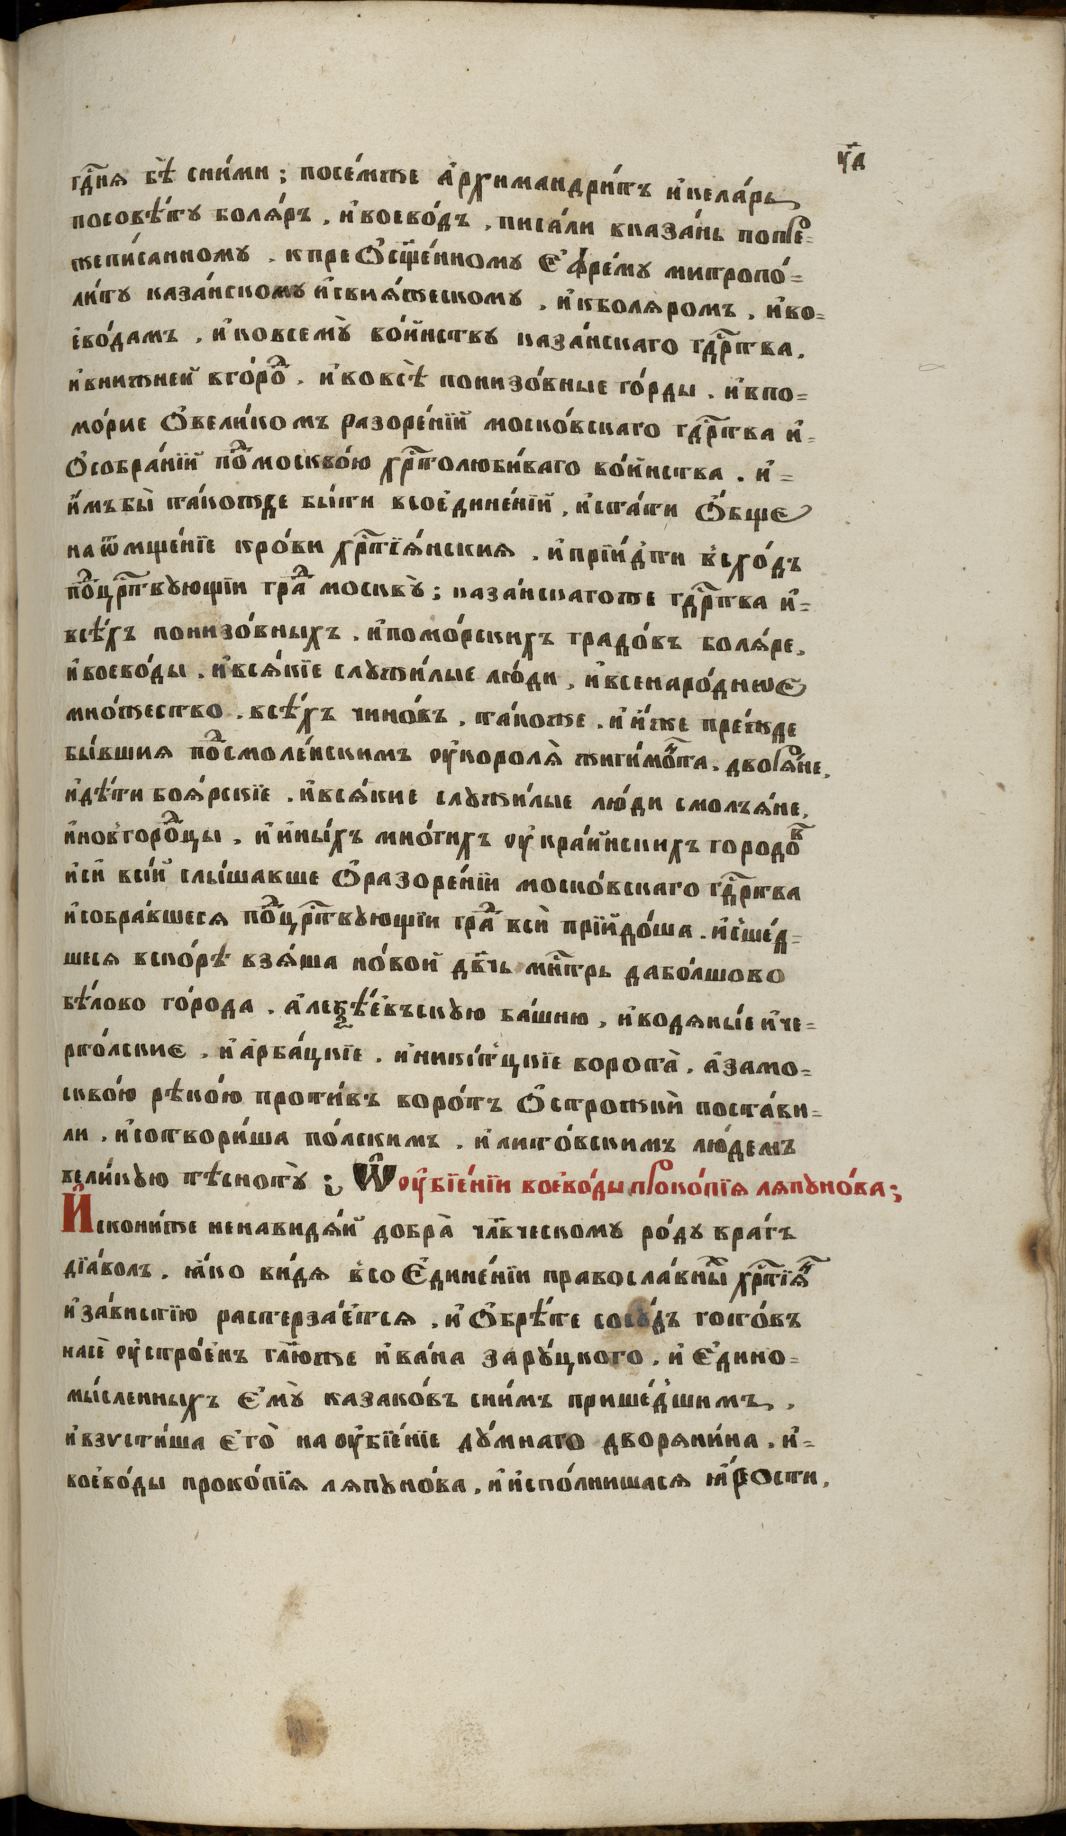 ч҃д
гдⷭ҇ня бѣ̀ сни́ми ; посе́мже а҆рхимандри́тъ и҆кела́рь
посовѣ́ту боля́ръ , и҆воево́дъ , писа́ли вказа́нь попре-
жепи́санному , кпреѡ҆сщ҃е́нному є҆фре́му митропо́-
ли́ту каза́нскому и҆свия́жескому , и҆кболяромъ , и҆во-
ево́дамъ , и҆ковсемꙋ̀ во́инству каза́нскаго гдⷭ҇рьства ,
и҆внижней вго́роⷣ , и҆ко всѣ̀ понизо́вные го́рды . и҆впо-
мо́рие ѡ҆вели́комъ разоре́нїй моско́вскаго гдⷭ҇рьтва и҆-
ѡ҆собра́нїй поⷣмоскво́ю хрⷭ҇толюби́ваго во́инства . и҆-
и҆́мъбы̀ та́кожде бы́ти всое҆дине́нїй , и҆ста́ти ѡ҆́бще
на ѿмще́нїе кро́ви хрⷭ҇тїя́нския , и҆прїи́дти в҆схо́дъ
поⷣцрⷭ҇твꙋющїи граⷣ москвꙋ̀ ; каза́нскагоже гдⷭ҇рьтва и҆-
всѣ́хъ понизо́вныхъ , и҆помо́рскихъ градо́въ боля́ре ,
и҆воево́ды , и҆вся́кїе слꙋжи́лые лю́ди , и҆всенаро́дное
мно́жество , всѣ́хъ чино́въ , та́коже , и҆ и҆́же пре́жде
бы́вшия поⷣсмоле́нскимъ ᲂу҆короля̀ жигимо́нта , дворя́не ,
и҆дѣ́ти боя́рскїе . и҆вся́кие слꙋжи́лые лю́ди смолъя́не ,
и҆новгоро́ⷣцы , и҆ и҆ны́хъ мно́гихъ ᲂу҆кра́инскихъ городоⷡ
и҆сѝ всѝ слы́шавше ѡ҆разоре́нїи моско́вскаго гдⷭ҇рьтва
и҆собра́вшеся поⷣцрⷭ҇твꙋющїи граⷣ всѝ прїйдо́ша . и҆сше́д-
шися вско́рѣ взя́ша но́вой дв҃чь мнⷭ҇трь даболшово
бѣ́лово го́рода , а҆леѯѣ́евъскꙋю ба́шню , и҆водяны́е и҆че-
рто́лские , и҆арба́цкїе , и҆ники́тцкїе ворота̀ , а҆замо-
скво́ю рѣко́ю проти́въ воро́тъ ѡ҆стро́жки поста́ви-
ли , и҆сотвори́ша по́лскимъ , и҆лито́вскимъ лю́демъ
вели́кꙋю тѣснотꙋ̀ ; Ѡ҆ ᲂу҆бїе́нїи воево́ды проко́пїя ляпꙋно́ва ;
И҆сконѝже ненавидя́й добра̀ чл҃вческому ро́дꙋ вра́гъ
дїа́волъ , ꙗ҆́ко ви́дя в҆соедине́нїи правосла́вныⷯ хрⷭ҇тїя́нъ
и҆за́вистїю растерза́ется , и҆ ѡ҆брѣ́те сосꙋ́дъ гото́въ
насѐ ᲂу҆стро́енъ гл҃юже и҆ва́на зарꙋ́цкого , и҆ є҆дино-
мы́сленныхъ є҆мꙋ̀ казако́въ сни́мъ прише́дшимъ ,
и҆взꙋсти́ша є҆го̀ на ᲂу҆бїе́нїе дꙋ́мнаго дворяни́на , и҆-
воево́ды проко́пїя ляпꙋно́ва , и҆ и҆спо́лнишася ꙗ҆́рости ,